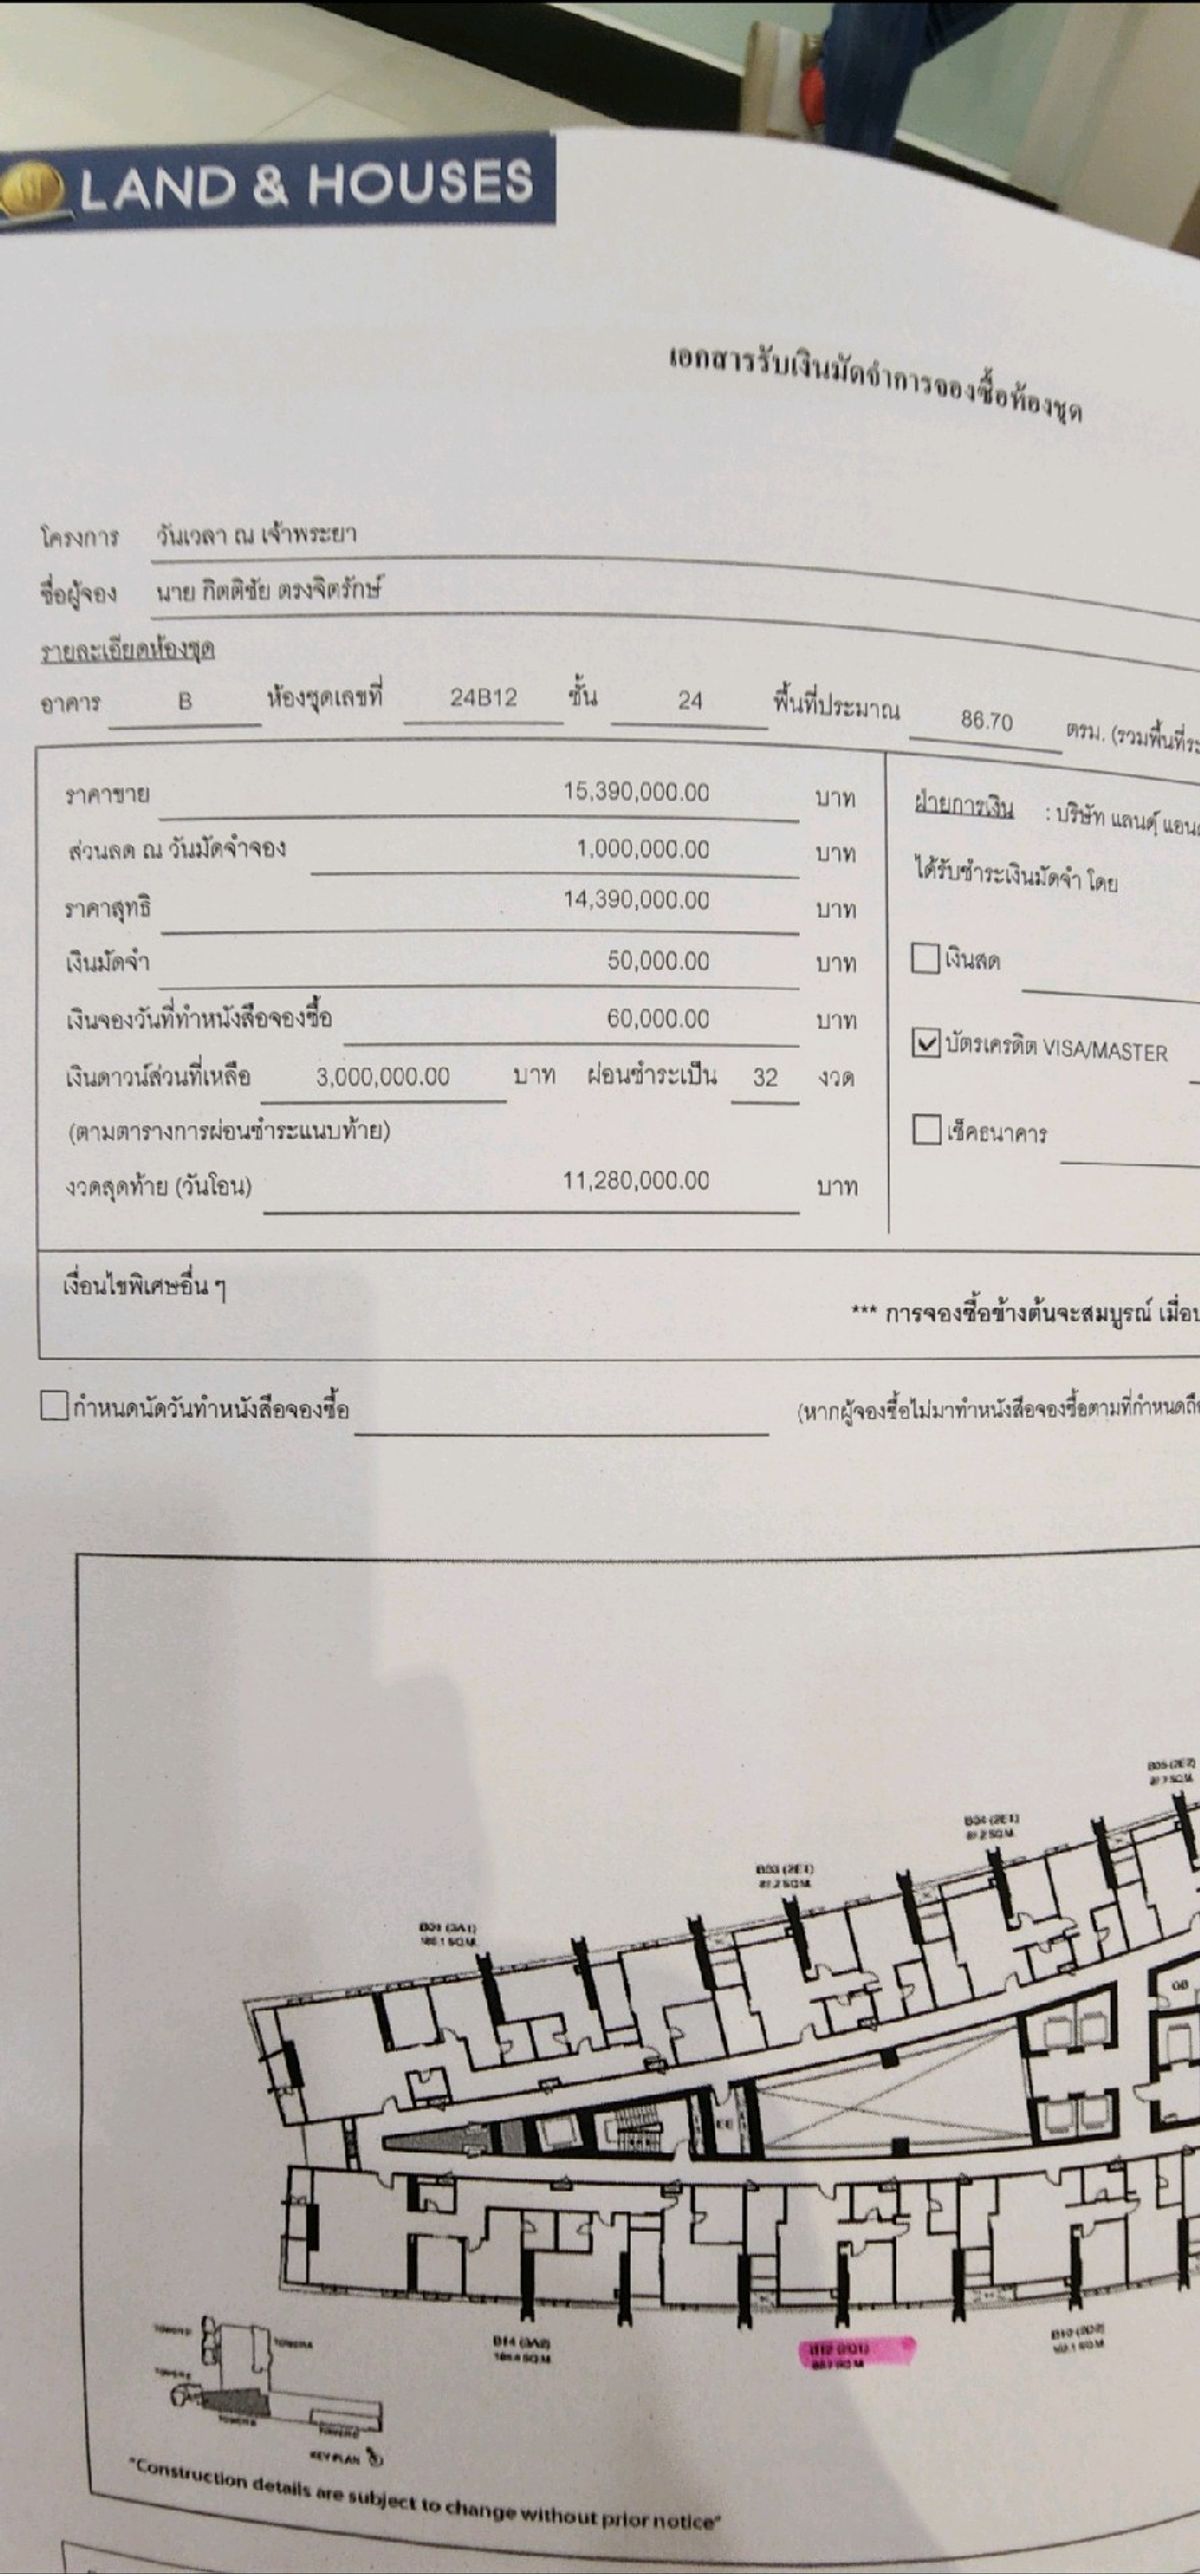 LAND & HOUSES
เอกสารรับเงินมัดจำการจองซื้อห้องชุด
โครงการ วันเวลา ณ เจ้าพระยา
ชื่อผู้จอง นาย กิตติชัย ตรงจิตรักษ์
รายละเอียดห้องชุด
อาคาร B ห้องชุดเลขที่ 24B12 ชั้น 24 พื้นที่ประมาณ 86.70 ตรม. (รวมพื้นที่ระ
ราคาขาย 15,390,000.00 บาท
ส่วนลด ณ วันมัดจำจอง 1,000,000.00 บาท
ราคาสุทธิ 14,390,000.00 บาท
เงินมัดจำ 50,000.00 บาท
เงินจองวันที่ทำหนังสือจองซื้อ 60,000.00 บาท
เงินดาวน์ส่วนที่เหลือ 3,000,000.00 บาท ผ่อนชำระเป็น 32 งวด
(ตามตารางการผ่อนชำระแนบท้าย)
งวดสุดท้าย (วันโอน) 11,280,000.00 บาท
ฝ่ายการเงิน : บริษัท แลนด์ แอน
ได้รับชำระเงินมัดจำ โดย
เงินสด
บัตรเครดิต VISA/MASTER
เช็คธนาคาร
เงื่อนไขพิเศษอื่น ๆ
*** การจองซื้อข้างต้นจะสมบูรณ์ เมื่อ
กำหนดนัดวันทำหนังสือจองซื้อ (หากผู้จองซื้อไม่มาทำหนังสือจองซื้อตามที่กำหนดถือ
B05 (2E2)
B04 (2E1)
81.2 SQ.M.
B03 (2E1)
81.2 SQ.M.
B01 (3A1)
B14 (3A2)
B12 (2D1)
86.7 SQ.M.
B10 (2D2)
KEY PLAN
"Construction details are subject to change without prior notice"